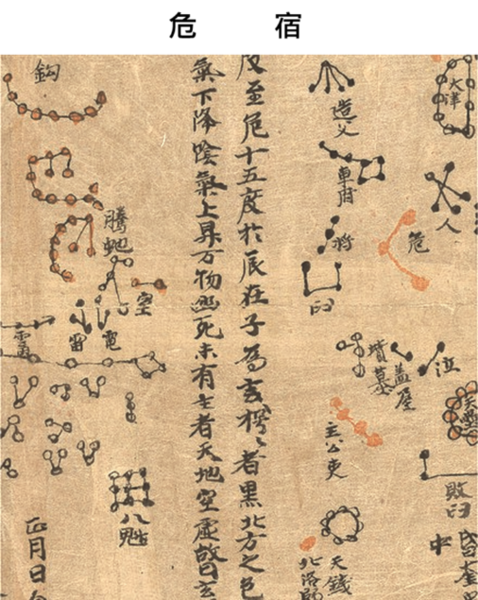 危宿
天津
人
危
泣
蓋屋
墳墓
敗臼
造父
車府
臼
天錢
北落師
至危十五度於辰在子為玄枵〻者黑北方之色
氣下降陰氣上昇万物幽死未有生者天地空虛
鈎
騰蛇
空
雷電
八魁
正月日